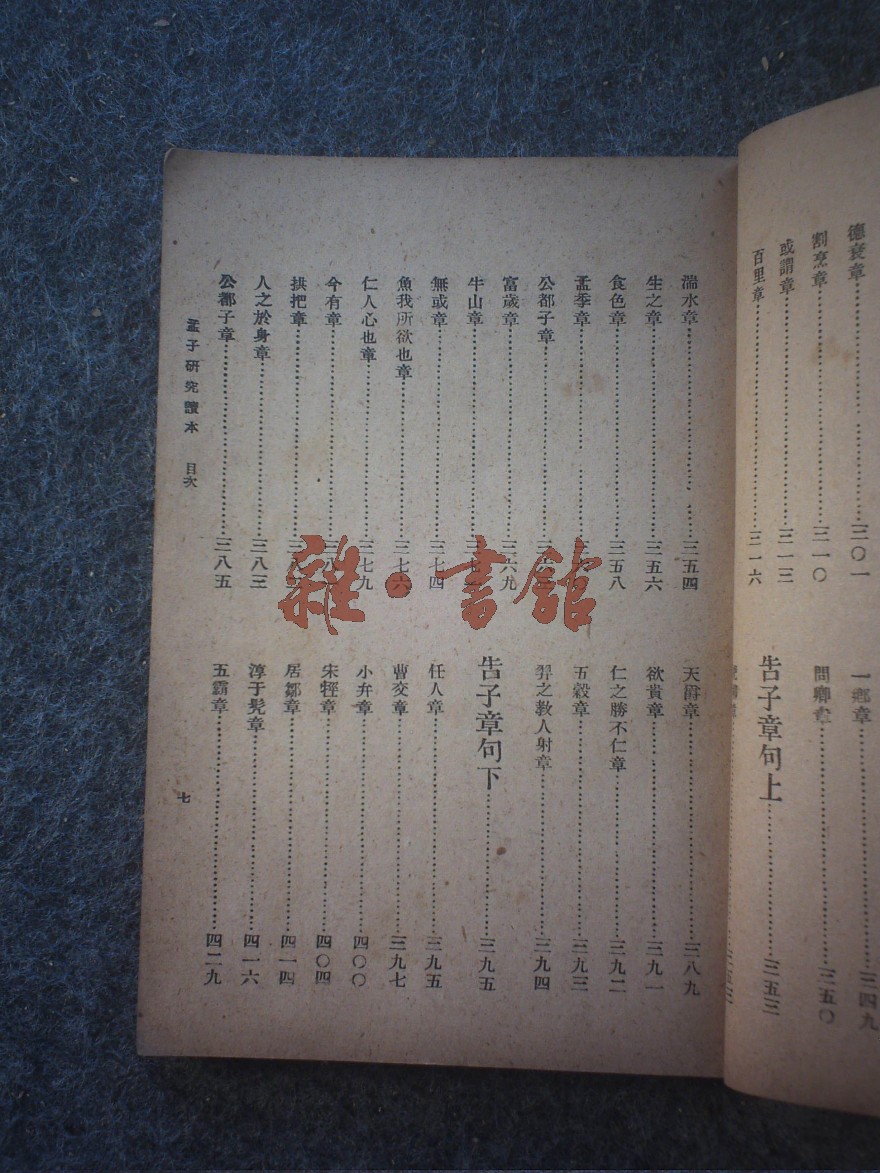 德衰章……三〇一
割烹章……三一〇
或謂章……三一三
百里章……三一六
一鄉章……三四九
問卿章……三五〇
告子章句上……三五三
湍水章……三五四
生之章……三五六
食色章……三五八
孟季章
公都子章
富歲章……三六九
牛山章
無或章……三七四
魚我所欲也章……三七六
仁人心也章……三七九
今有章
拱把章
人之於身章……三八三
公都子章……三八五
天爵章……三八九
欲貴章……三九一
仁之勝不仁章……三九二
五穀章……三九三
羿之教人射章……三九四
告子章句下……三九五
任人章……三九五
曹交章……三九七
小弁章……四〇〇
宋牼章……四〇四
居鄒章……四一四
淳于髡章……四一六
五霸章……四二九
孟子研究讀本 目次
七
雜·書館